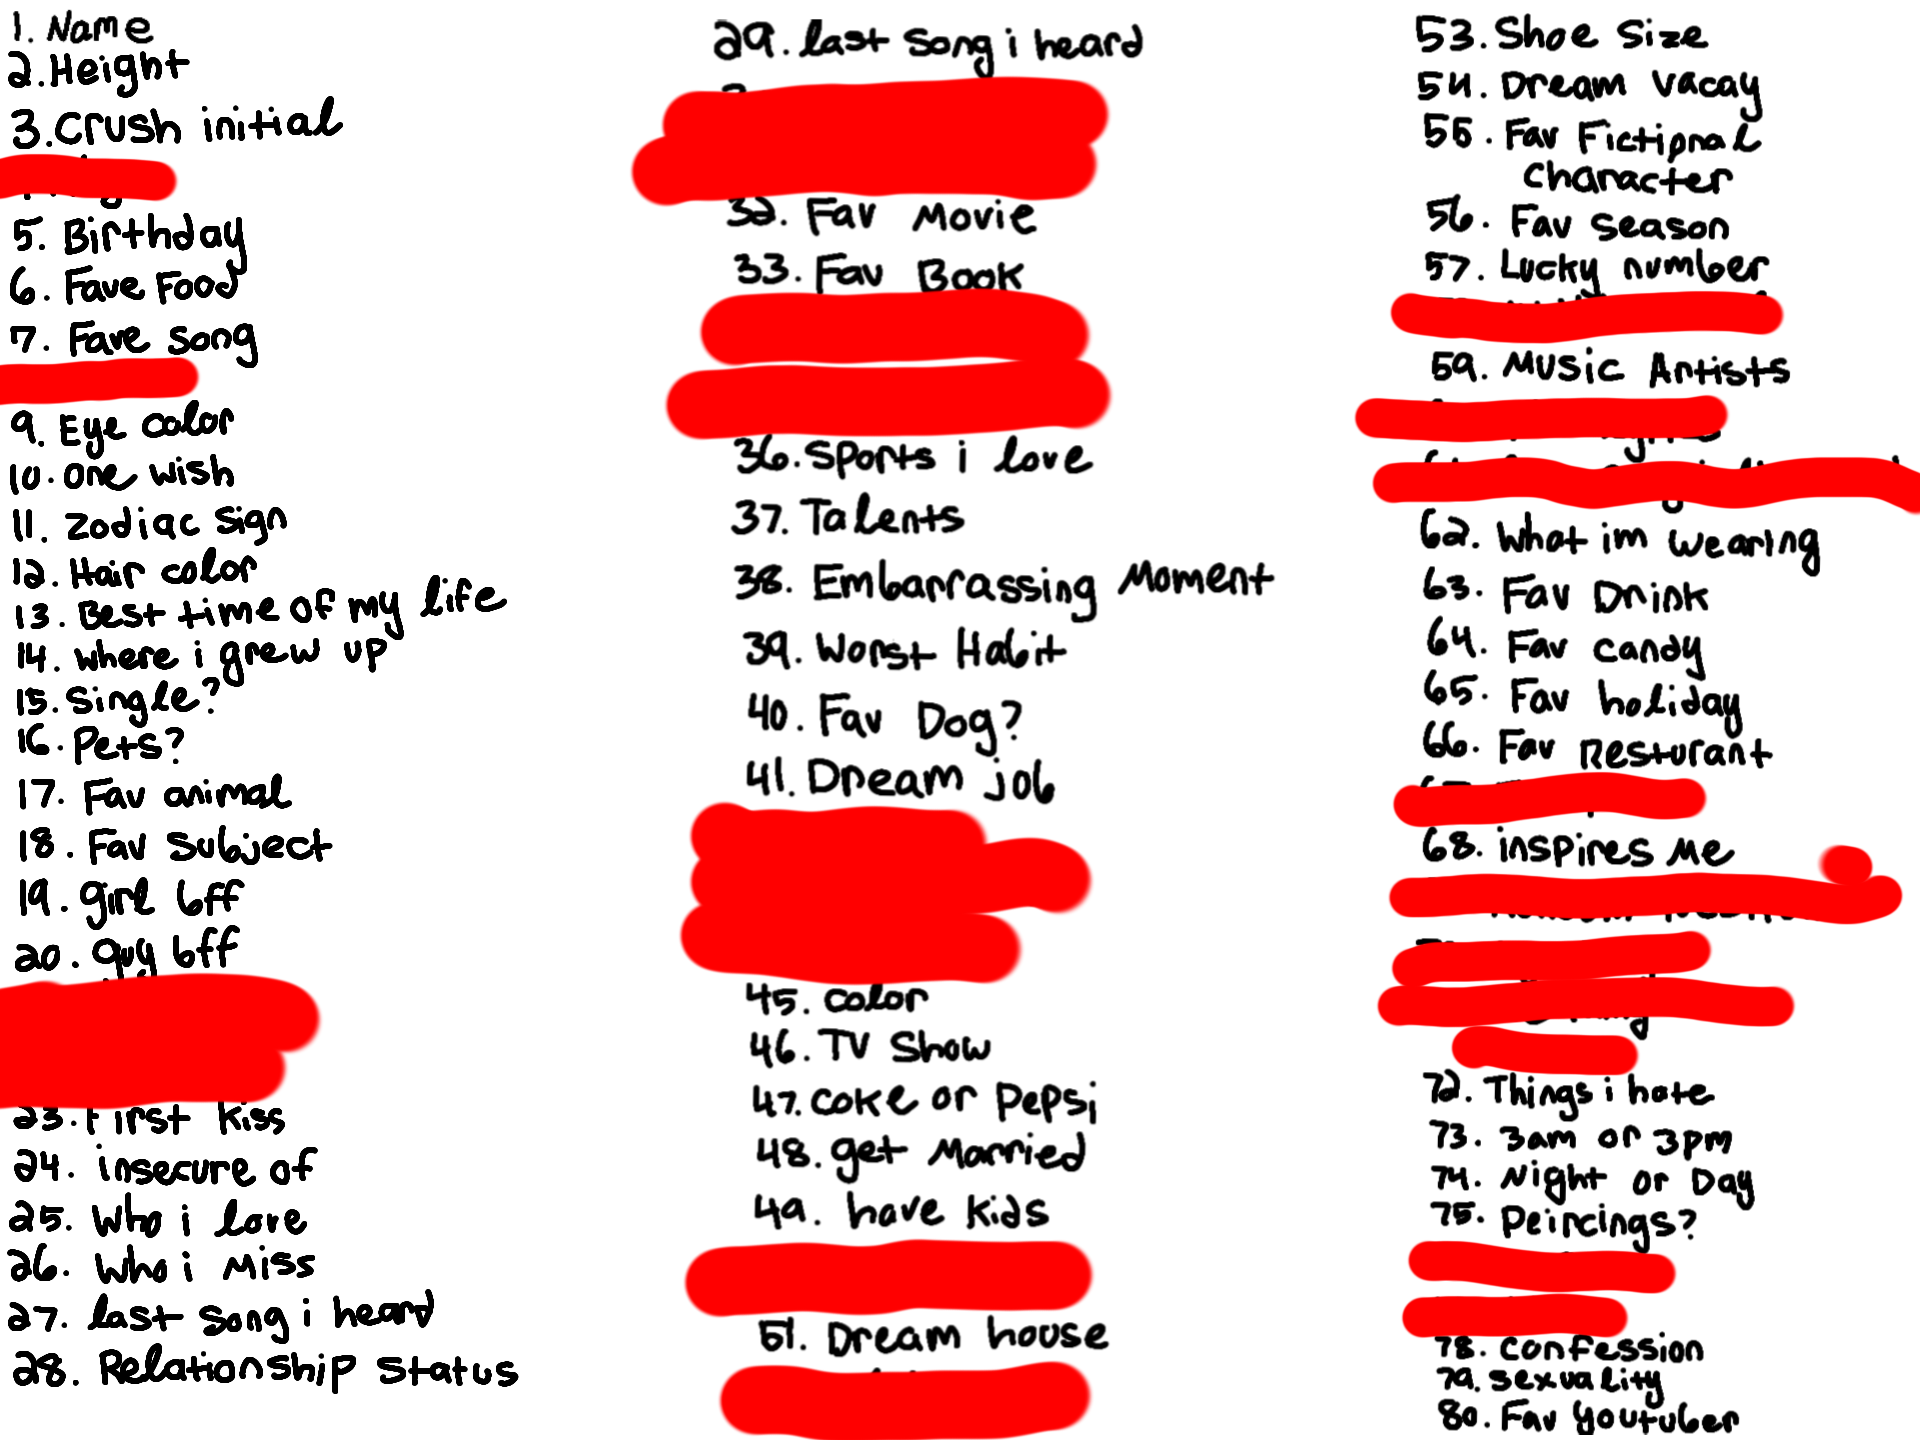 1. Name
2. Height
3. Crush initial
5. Birthday
6. Fave Food
7. Fave song
9. Eye color
10. one wish
11. Zodiac sign
12. Hair color
13. Best time of my life
14. where i grew up
15. Single?
16. Pets?
17. Fav animal
18. Fav subject
19. girl bff
20. guy bff
23. First kiss
24. insecure of
25. Who i love
26. Who i Miss
27. last song i heard
28. Relationship status
29. last song i heard
32. Fav Movie
33. Fav Book
36. Sports i love
37. Talents
38. Embarrassing Moment
39. Worst Habit
40. Fav Dog?
41. Dream job
45. color
46. TV Show
47. Coke or Pepsi
48. get Married
49. have kids
51. Dream house
53. Shoe Size
54. Dream vacay
55. Fav Fictional
Character
56. Fav season
57. Lucky number
59. Music Artists
62. What im wearing
63. Fav Drink
64. Fav candy
65. Fav holiday
66. Fav Resturant
68. inspires Me
72. Things i hate
73. 3am or 3pm
74. Night or Day
75. Peircings?
78. Confession
79. sexuality
80. Fav Youtuber